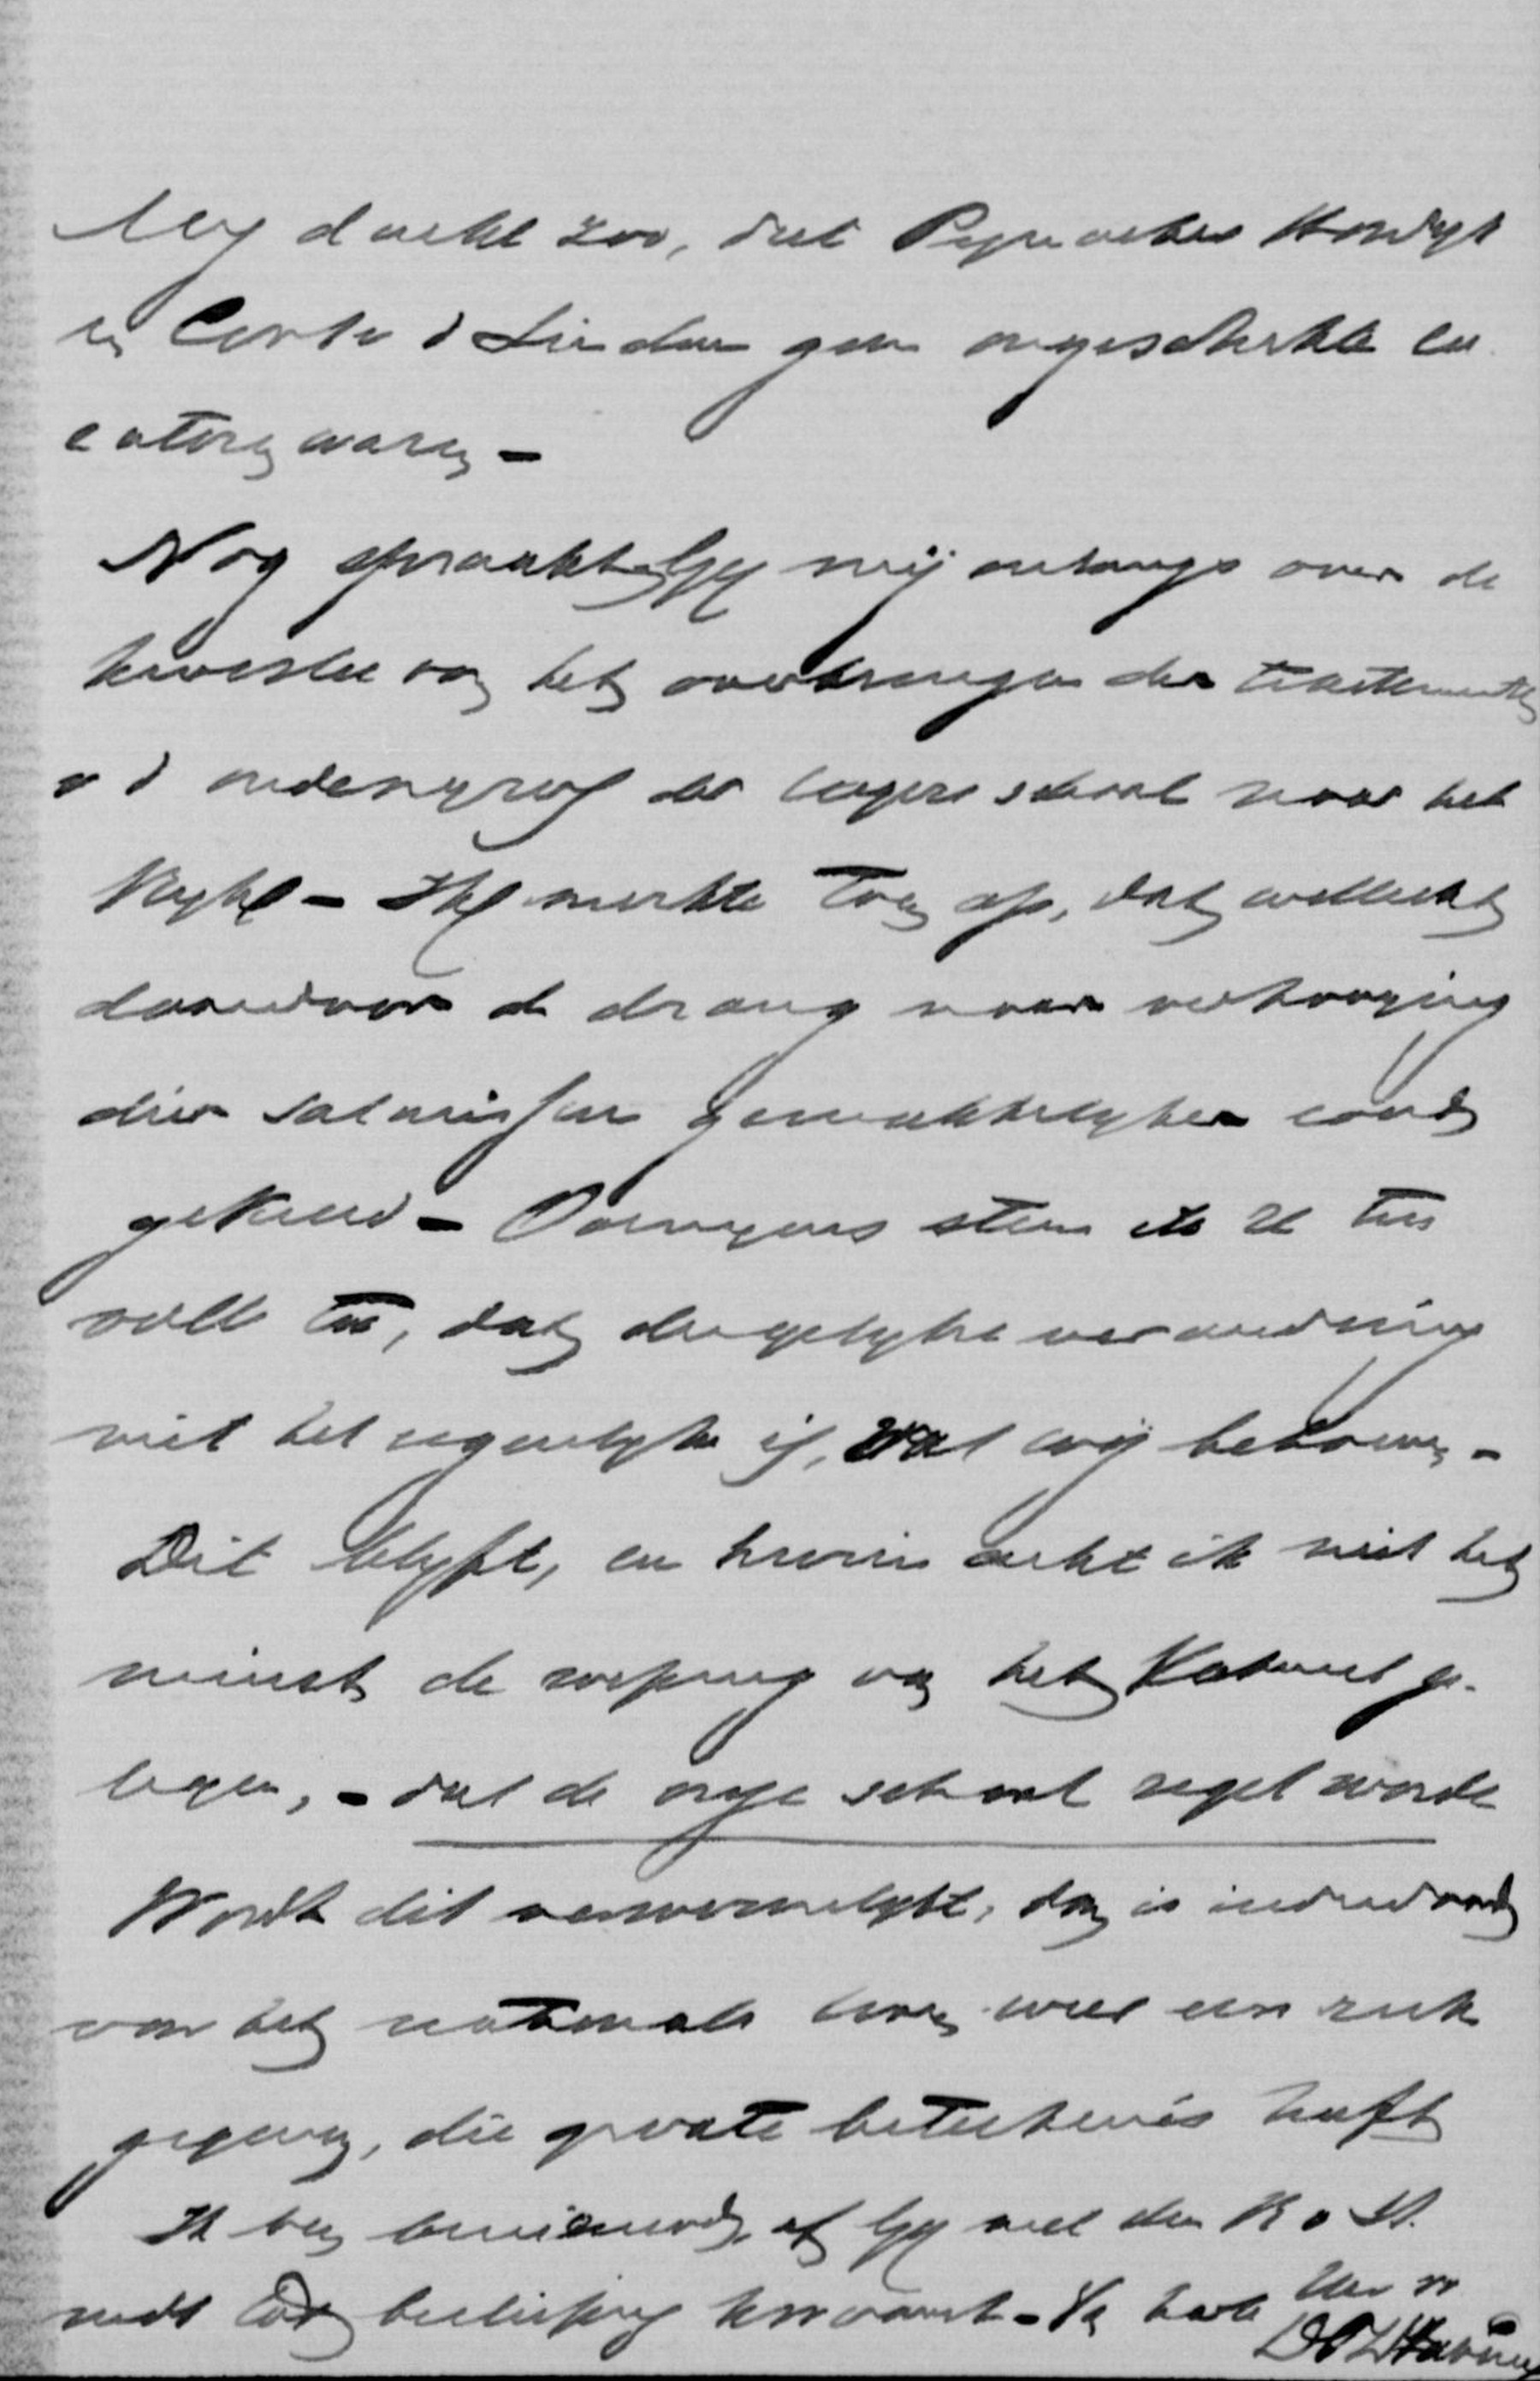 Mij dacht zoo, dat Pynacker Hordijk
en Cort v d Linden geen ongeschikte lu
catoren waren –
Nog spraakt Gij mij onlangs over de
kwestie van het overbrengen der tractementen
v d onderwijzers der lagere school naar het
Rijk – Ik merkte toen op, dat wellicht
daardoor de drang naar verhooging
dier salarissen gemakkelijker wordt
gekeerd – Overigens stem ik U ten
volle toe, dat dergelijke verandering
niet het eigenlijke is, wat wij behoeven –
Dit blijft, en hierin acht ik niet het
minst de roeping van het Kabinet ge-
legen, – dat de vrije school regel worde
Wordt dit verwezenlijkt, dan is inderdaad
aan het nationale leven weer een ruk
gegeven, die groote beteekenis heeft
Ik ben benieuwd, of Gij met den R v St.
nader tot beslissing kwaamt – Va hart Uw vr